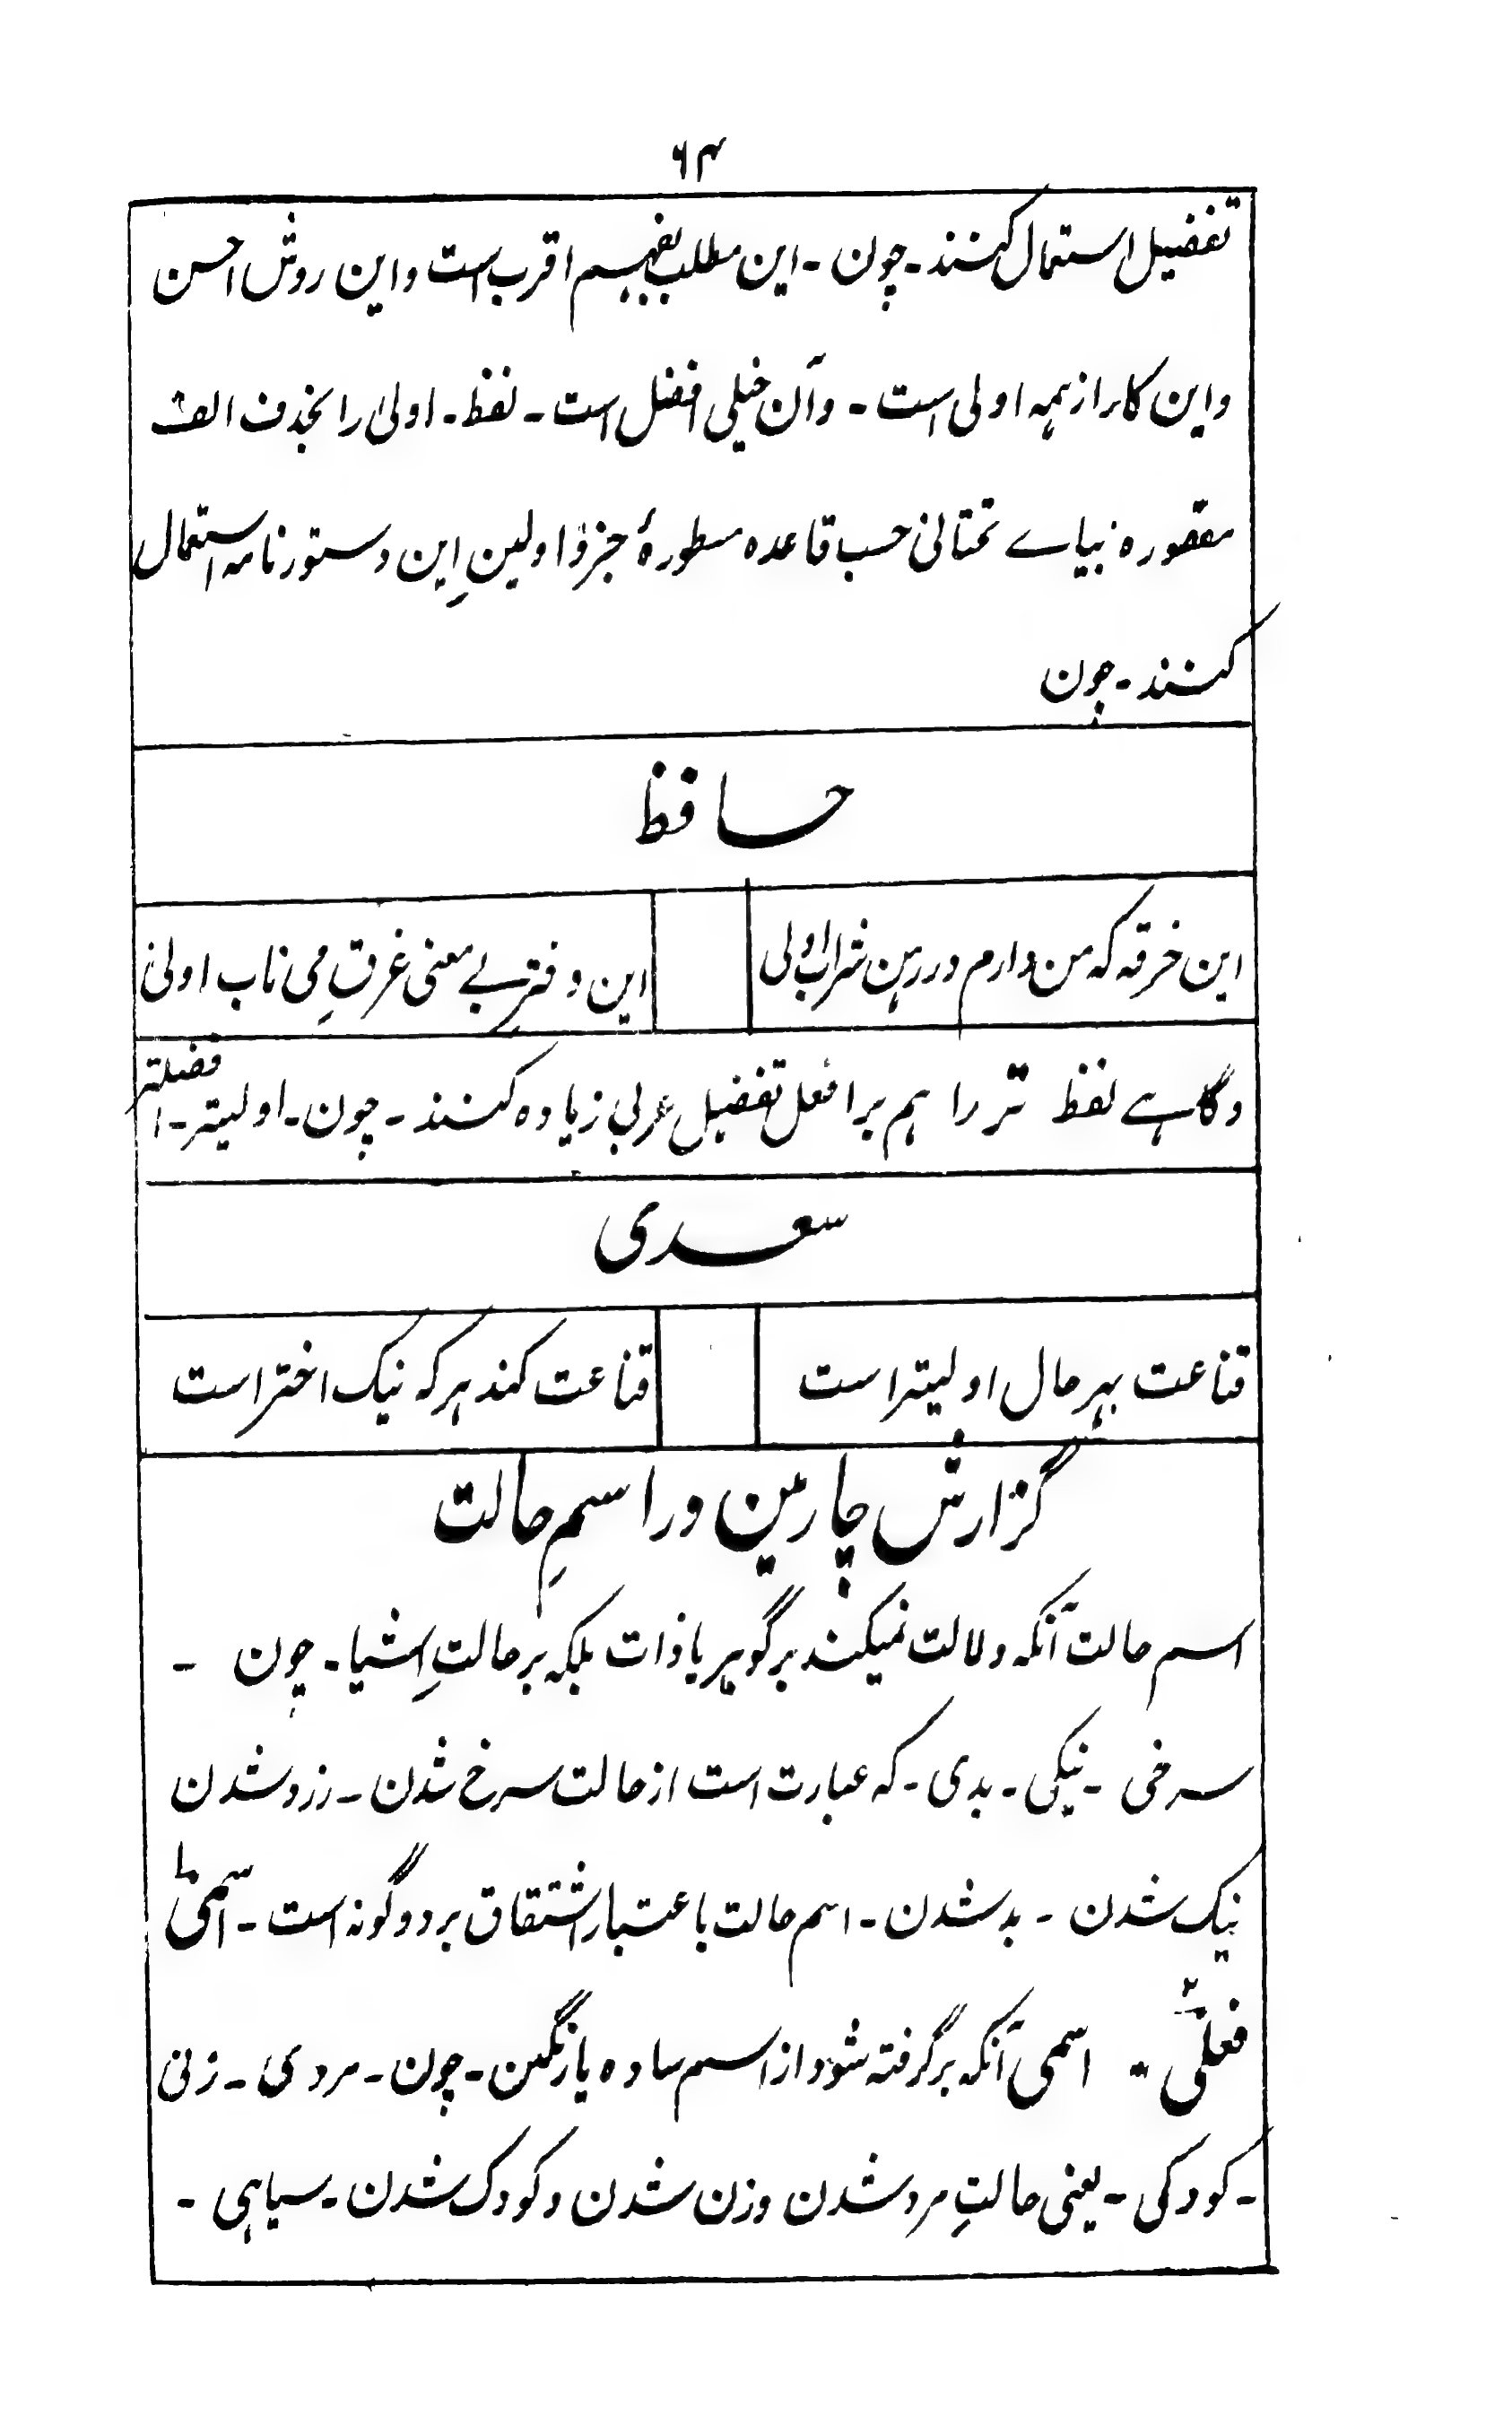 ۶۴
تفضیل استعمال کنند ۔ چون ۔ این مطلب بفہم اقرب است و این روش احسن
و این کار از ہمہ اولی است ۔ و آن خیلی افضل است ۔ لفظ ۔ اولیٰ را بحذف الف
مقصورہ بیاے تحتانی حسب قاعدہ مسطورۂ جزو اولینِ این دستور نامہ استعمال
کنند ۔ چون
حافظ
این خرقہ کہ من دارم در رہن شراب اولی
این دفترِ بے معنی غرقِ می ناب اولیٰ
و گاہے لفظ تر را ہم بر افعل تفضیل عربی زیادہ کنند ۔ چون ۔ اولیتر ۔ افضلتر
سعدی
قناعت بہر حال اولیتر است
قناعت کند ہر کہ نیک اختر است
گزارش چارمین در اسمِ حالت
اسم حالت آنکہ دلالت نمیکند بر گوہر یا ذات بلکہ بر حالتِ اشیا ۔ چون ۔
سرخی ۔ نیکی ۔ بدی ۔ کہ عبارت است از حالت سرخ شدن ۔ زرد شدن
نیک شدن ۔ بد شدن ۔ اسم حالت باعتبار اشتقاق بر دو گونہ است ۔ اسمی ۱
فعلی ۲ ۔ اسمی آنکہ برگرفتہ شود از اسم سادہ یا رنگین ۔ چون ۔ مردی ۔ زنی
۔ کودکی ۔ یعنی حالتِ مرد شدن و زن شدن و کودک شدن ۔ سیاہی ۔